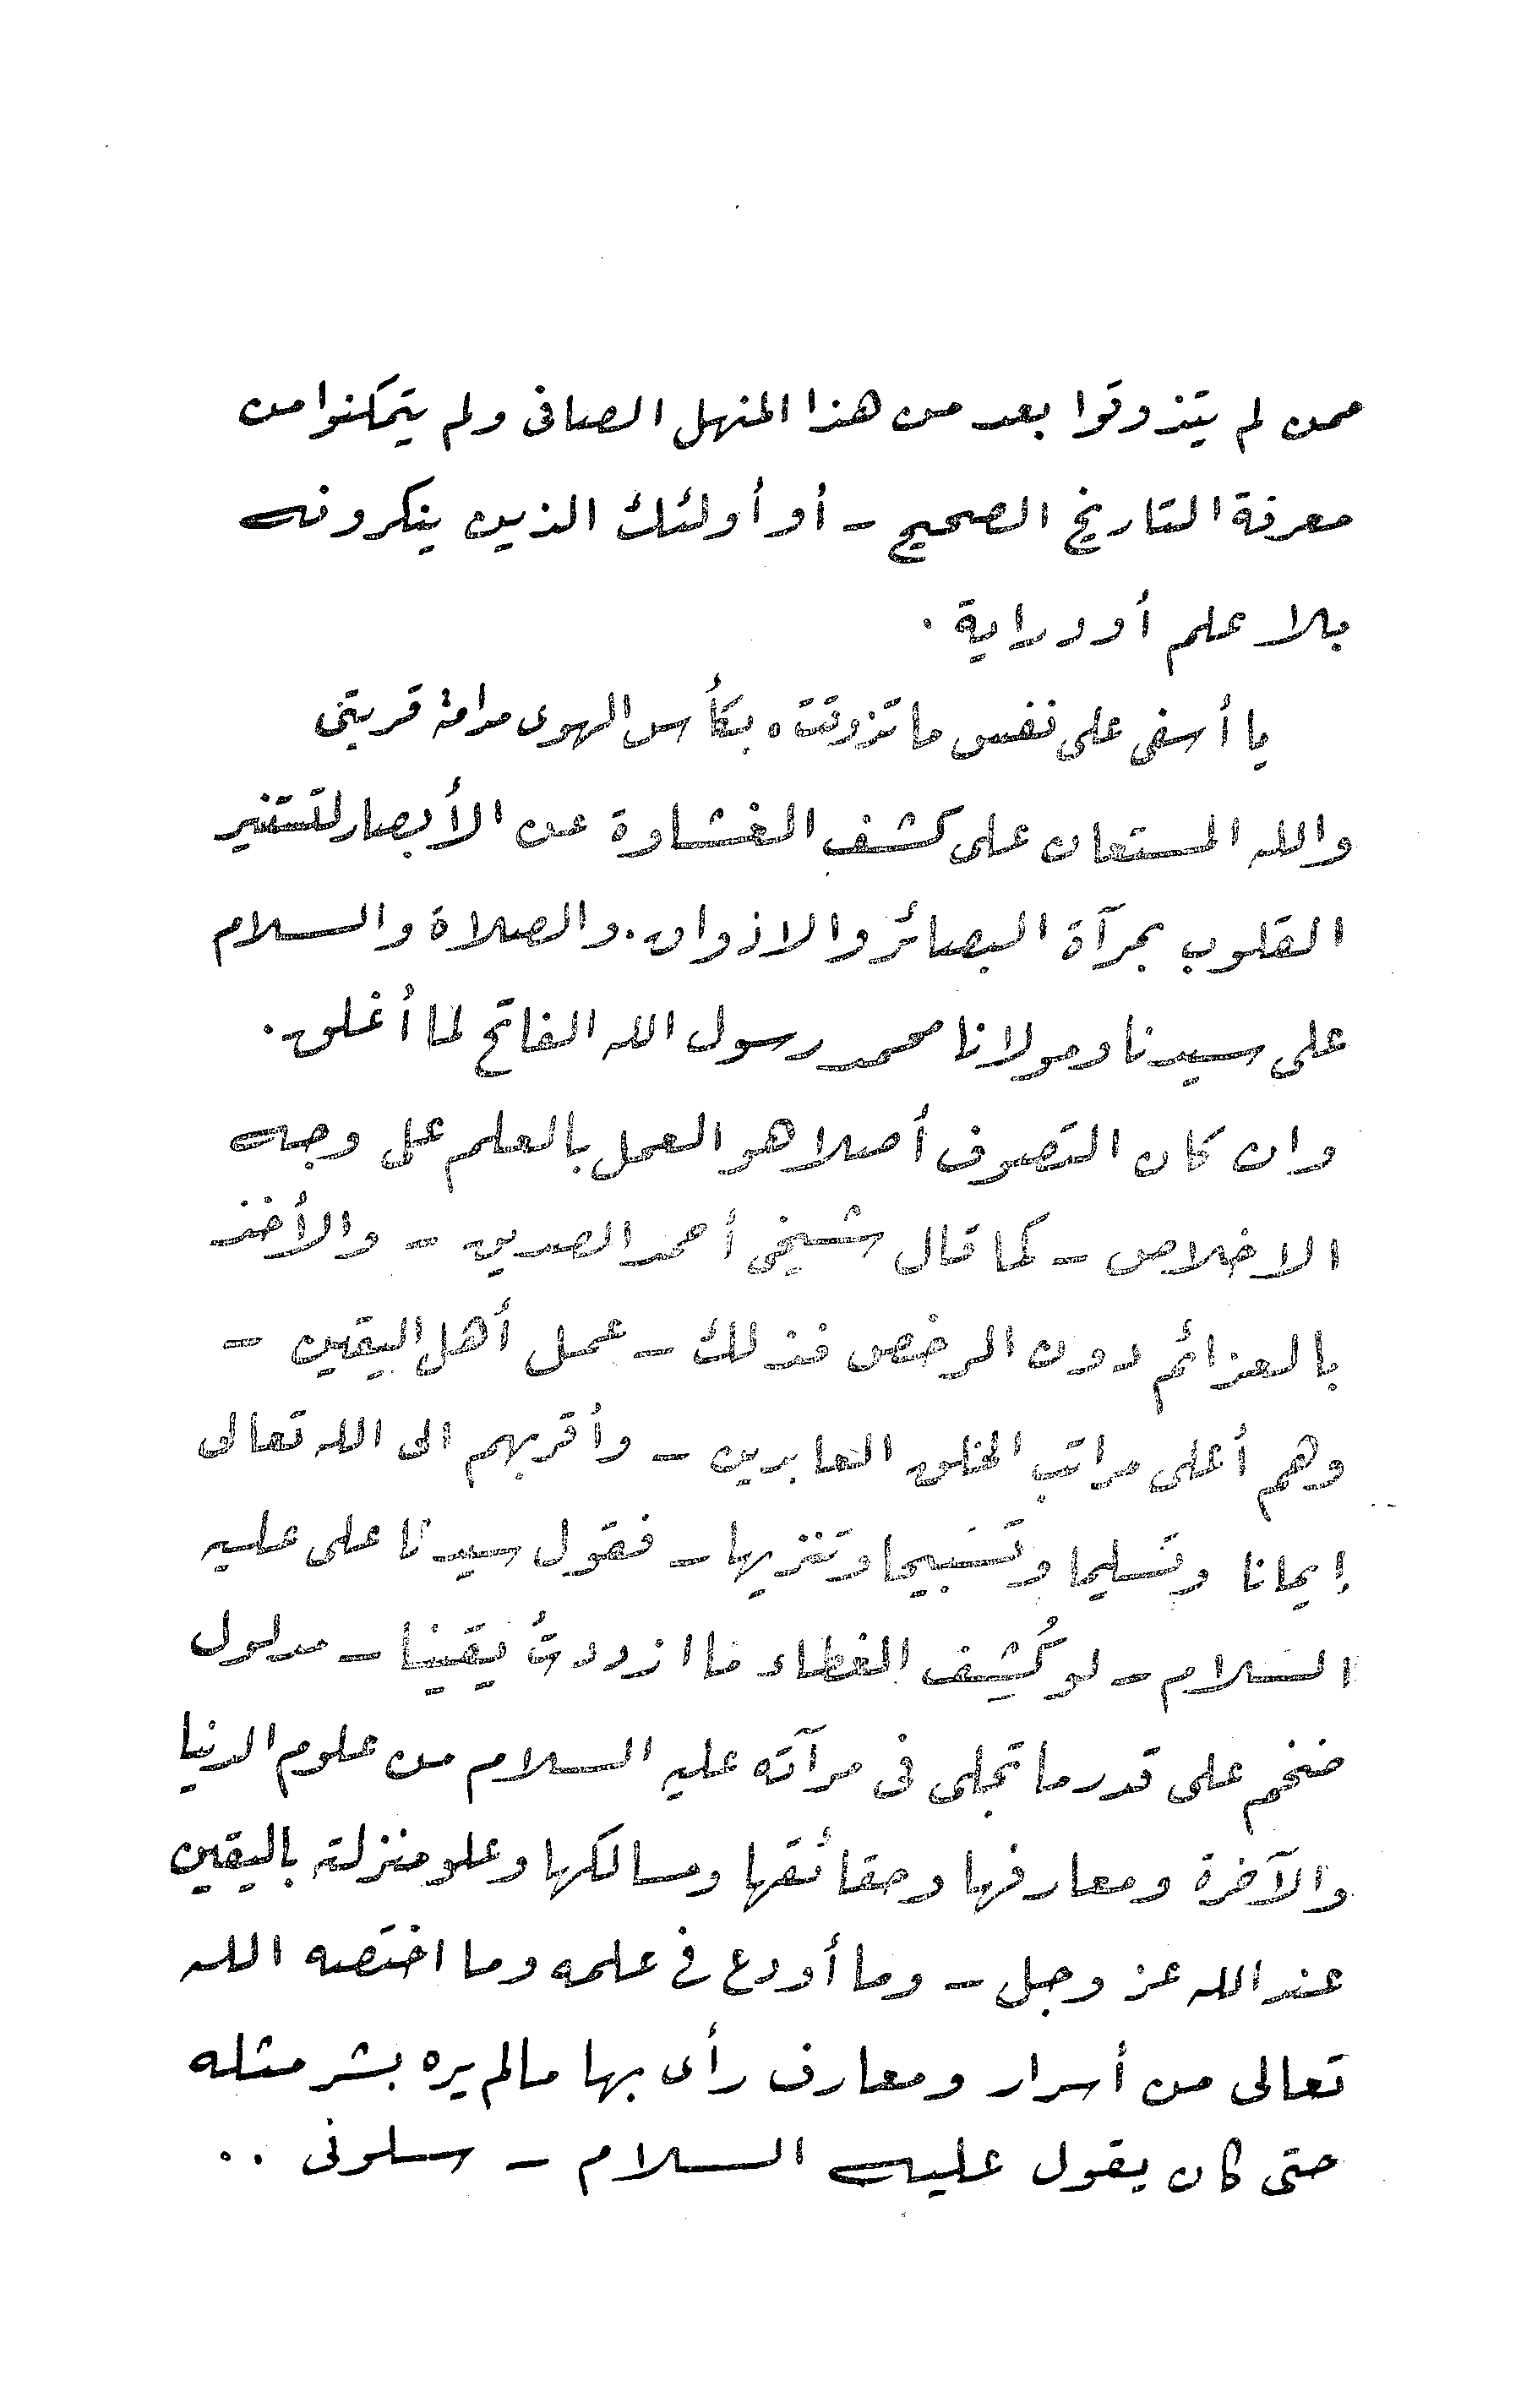 ممن لم يتذوقوا بعد من هذا المنهل الصافى ولم يتمكنوا من
معرفة التاريخ الصحيح - أو أولئك الذين ينكرونه
بلا علم أو دراية .
يا أسفى على نفس ما تذوقت ه بكأس الهوى مدامة قريتى
والله المستعان على كشف الغشاوة عن الأبصار لتستنير
القلوب بمرآة البصائر والاذواق. والصلاة والسلام
على سيدنا ومولانا محمد رسول الله الفاتح لما أغلق.
وان كان التصوف أصلا هو العمل بالعلم على وجه
الاخلاص - كما قال شيخى أحمد الصديق - والأخذ
بالعزائم دون الرخص فذلك - عمل أهل اليقين -
وهم أعلى مراتب الخلق العابدين - وأقربهم الى الله تعالى
إيمانا وتسليما وتسبيحا وتنزيها - فقول سيدنا على عليه
السلام - لو كُشِف الغطاء ما ازددتُ يقينا - مدلول
ضخم على قدر ما تجلى فى مرآته عليه السلام من علوم الدنيا
والآخرة ومعارفها وحقائقها ومسالكها وعلو منزلة باليقين
عند الله عز وجل - وما أودع فى علمه وما اختصه الله
تعالى من أسرار ومعارف رأى بها مالم يره بشر مثله
حتى كان يقول عليه السلام - سلونى ..